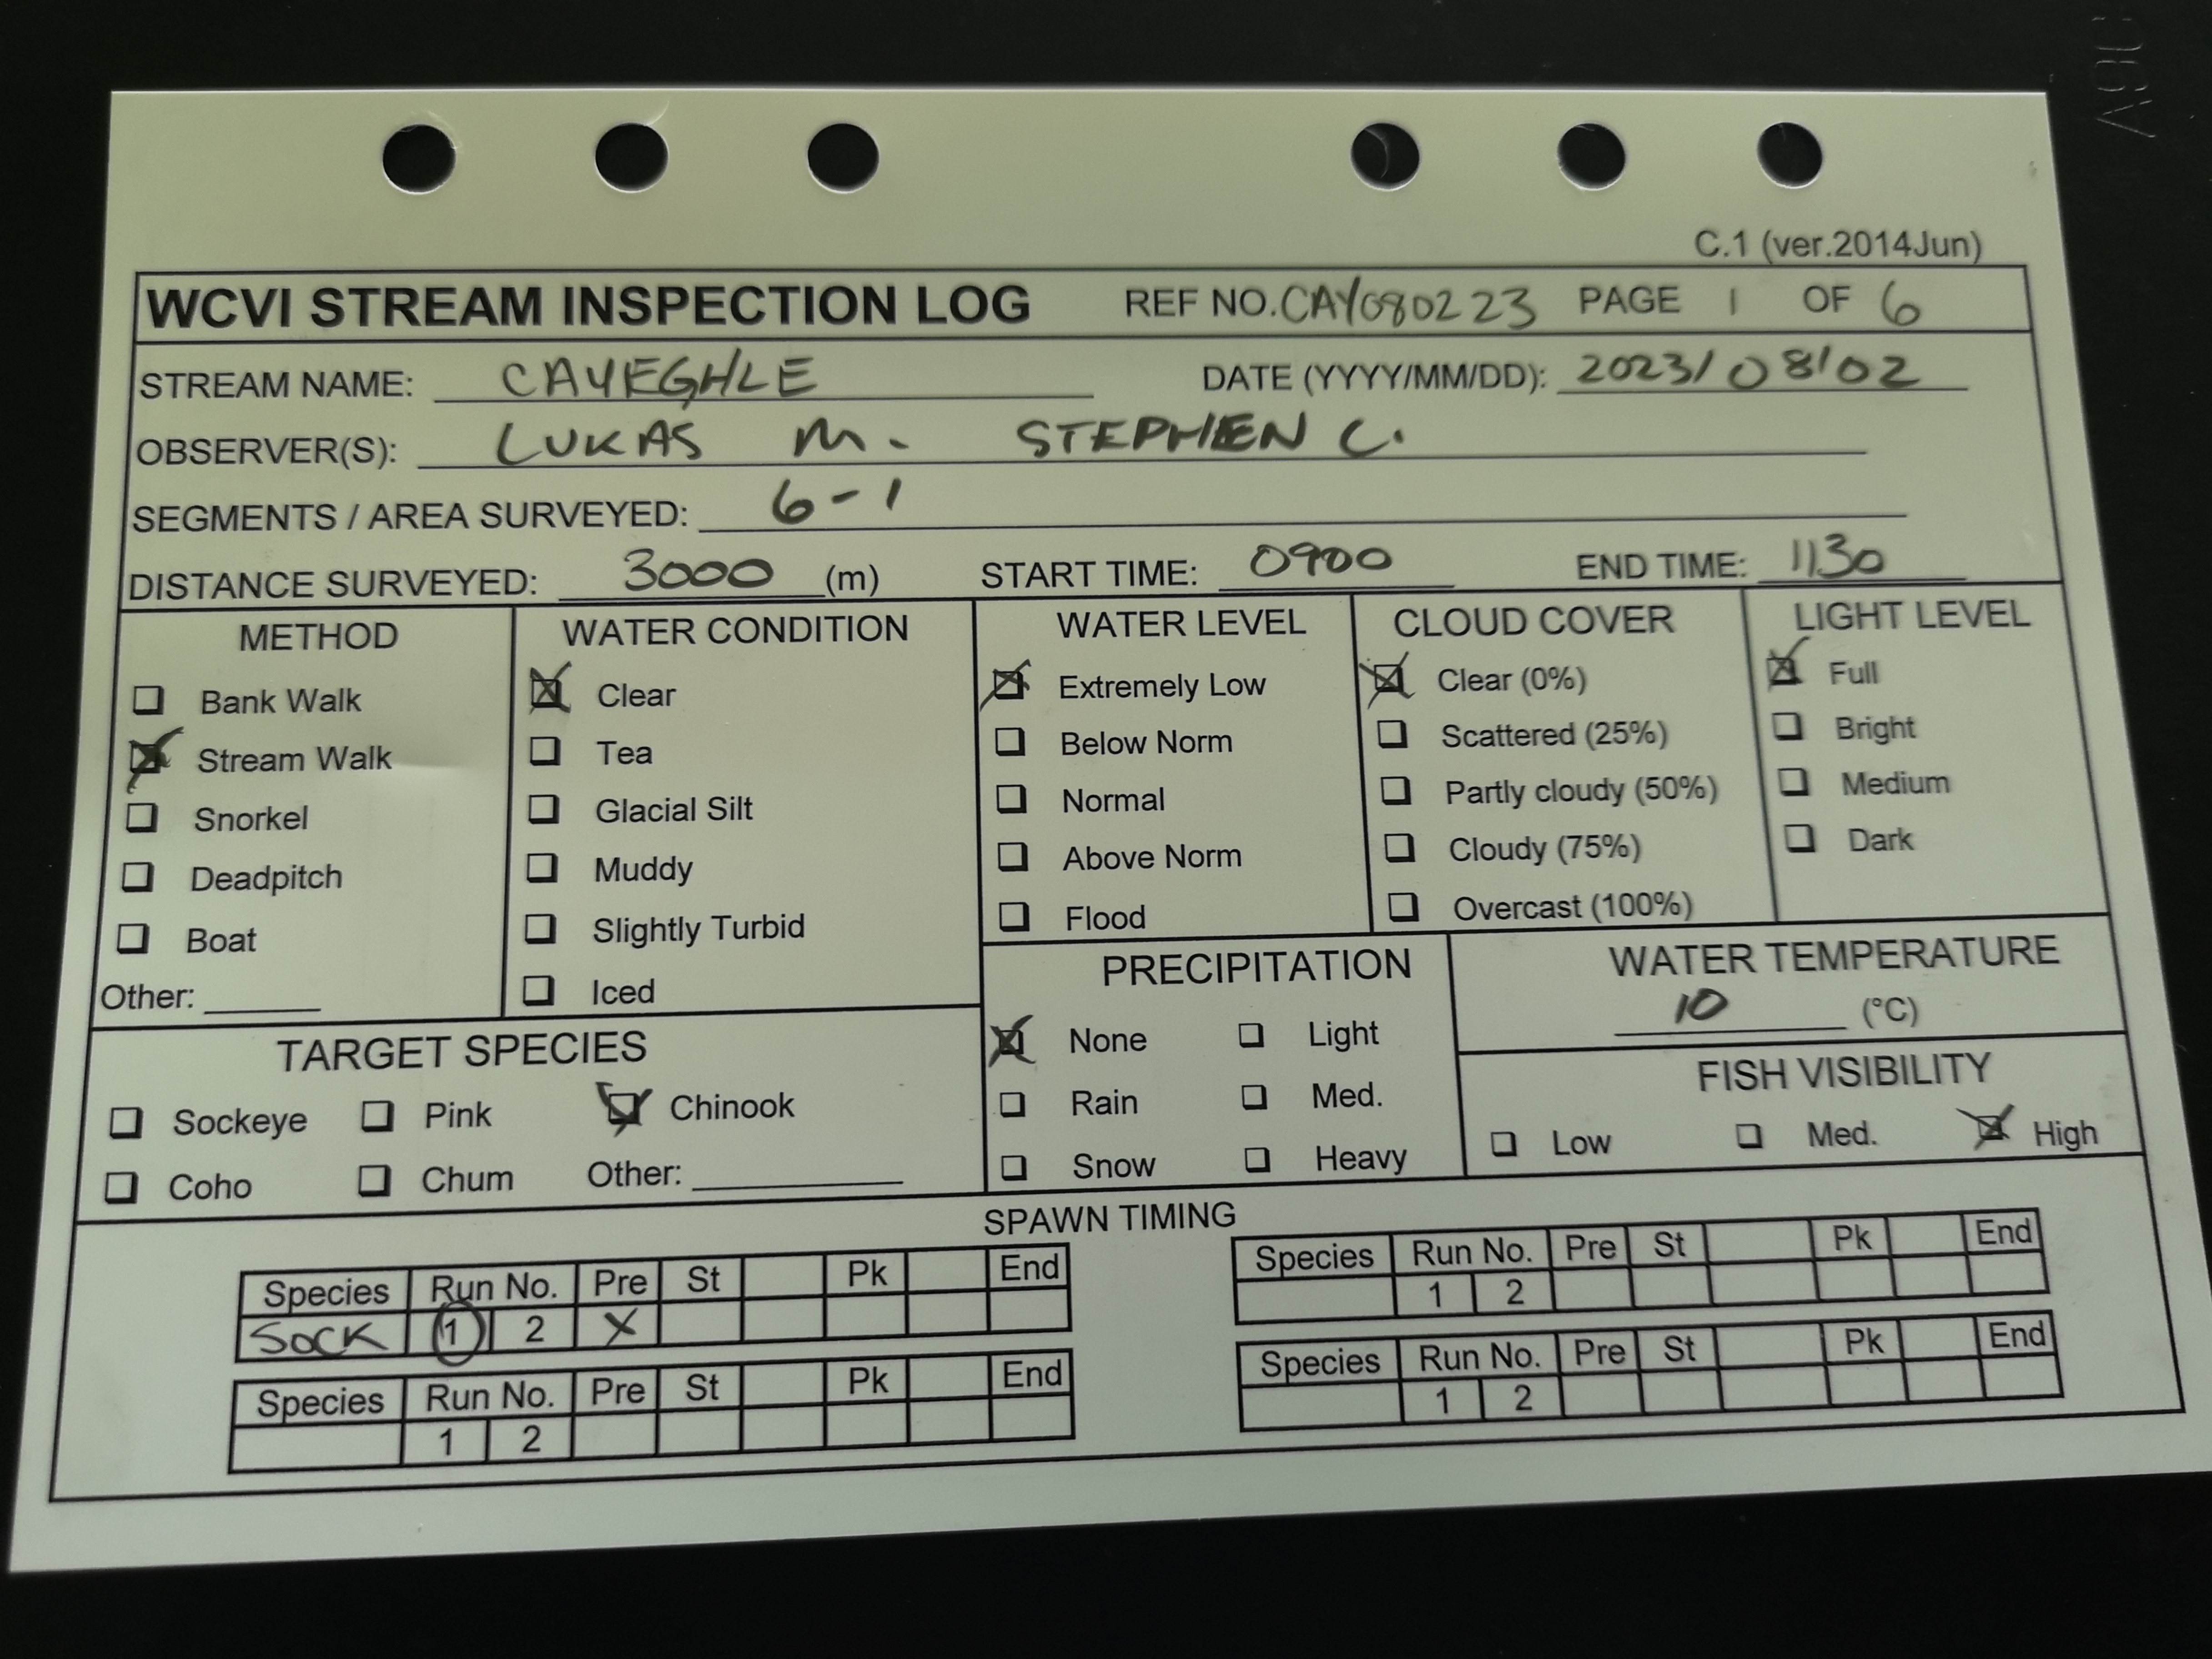 C.1 (ver.2014Jun)
WCVI STREAM INSPECTION LOG REF NO. CAY080223 PAGE 1 OF 6
STREAM NAME: CAYEGHLE DATE (YYYY/MM/DD): 2023/08/02
OBSERVER(S): LUKAS M. STEPHEN C.
SEGMENTS / AREA SURVEYED: 6-1
DISTANCE SURVEYED: 3000 (m) START TIME: 0900 END TIME: 1130
METHOD
Bank Walk
Stream Walk
Snorkel
Deadpitch
Boat
Other:
WATER CONDITION
Clear
Tea
Glacial Silt
Muddy
Slightly Turbid
Iced
WATER LEVEL
Extremely Low
Below Norm
Normal
Above Norm
Flood
CLOUD COVER
Clear (0%)
Scattered (25%)
Partly cloudy (50%)
Cloudy (75%)
Overcast (100%)
LIGHT LEVEL
Full
Bright
Medium
Dark
TARGET SPECIES
Sockeye Pink Chinook
Coho Chum Other:
PRECIPITATION
None Light
Rain Med.
Snow Heavy
WATER TEMPERATURE
10 (°C)
FISH VISIBILITY
Low Med. High
SPAWN TIMING
Species Run No. Pre St Pk End
SOCK 1 2 X
Species Run No. Pre St Pk End
1 2
Species Run No. Pre St Pk End
1 2
Species Run No. Pre St Pk End
1 2